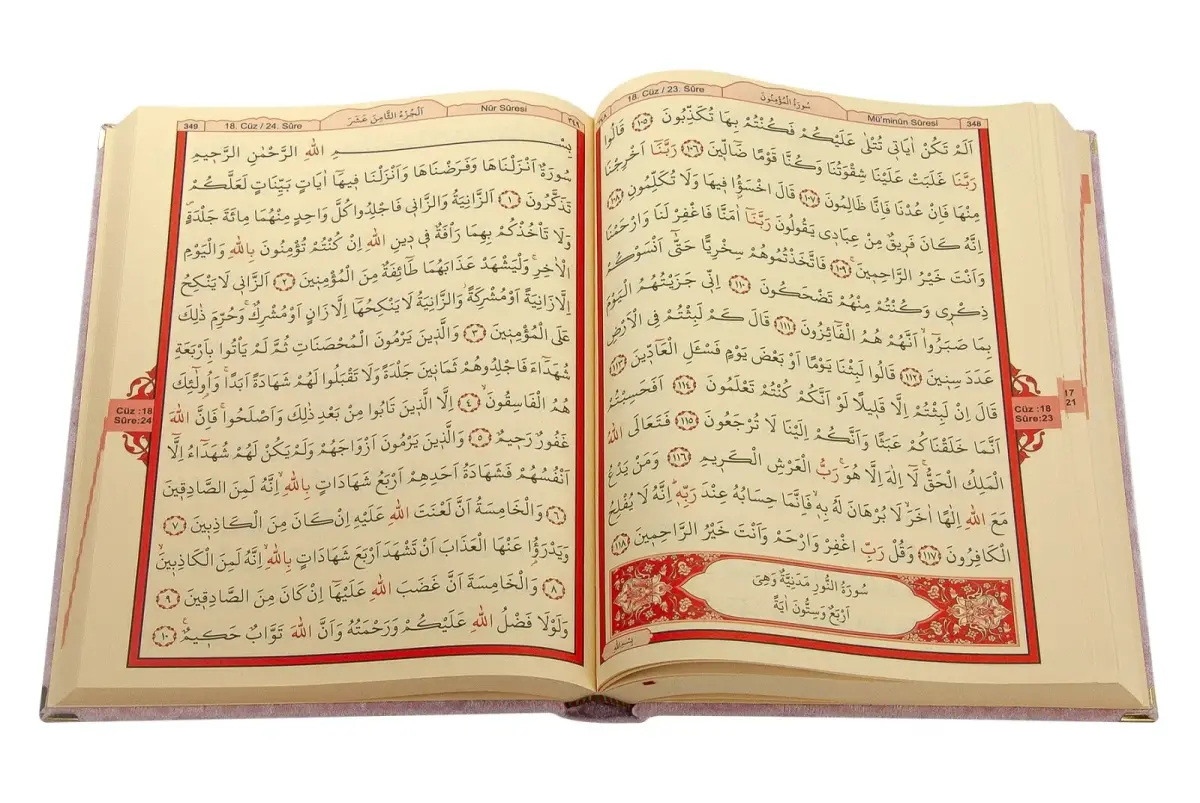 سُورَةُ الْمُؤْمِنُونَ
18. Cüz / 23. Sûre
Mü'minûn Sûresi 348
اَلَمْ تَكُنْ اٰيَاتٖى تُتْلٰى عَلَيْكُمْ فَكُنْتُمْ بِهَا تُكَذِّبُونَ ﴿١٠٥﴾ قَالُوا
رَبَّنَا غَلَبَتْ عَلَيْنَا شِقْوَتُنَا وَكُنَّا قَوْمًا ضَٓالّٖينَ ﴿١٠٦﴾ رَبَّنَٓا اَخْرِجْنَا
مِنْهَا فَاِنْ عُدْنَا فَاِنَّا ظَالِمُونَ ﴿١٠٧﴾ قَالَ اخْسَؤُ۫ا فٖيهَا وَلَا تُكَلِّمُونِ ﴿١٠٨﴾
اِنَّهُ كَانَ فَرٖيقٌ مِنْ عِبَادٖى يَقُولُونَ رَبَّنَٓا اٰمَنَّا فَاغْفِرْ لَنَا وَارْحَمْنَا
وَاَنْتَ خَيْرُ الرَّاحِمٖينَ ﴿١٠٩﴾ فَاتَّخَذْتُمُوهُمْ سِخْرِيًّا حَتّٰٓى اَنْسَوْكُمْ
ذِكْرٖى وَكُنْتُمْ مِنْهُمْ تَضْحَكُونَ ﴿١١٠﴾ اِنّٖى جَزَيْتُهُمُ الْيَوْمَ
بِمَا صَبَرُٓوا اَنَّهُمْ هُمُ الْفَٓائِزُونَ ﴿١١١﴾ قَالَ كَمْ لَبِثْتُمْ فِى الْاَرْضِ
عَدَدَ سِنٖينَ ﴿١١٢﴾ قَالُوا لَبِثْنَا يَوْمًا اَوْ بَعْضَ يَوْمٍ فَسْـَٔلِ الْعَٓادّٖينَ ﴿١١٣﴾
قَالَ اِنْ لَبِثْتُمْ اِلَّا قَلٖيلًا لَوْ اَنَّكُمْ كُنْتُمْ تَعْلَمُونَ ﴿١١٤﴾ اَفَحَسِبْتُمْ
اَنَّمَا خَلَقْنَاكُمْ عَبَثًا وَاَنَّكُمْ اِلَيْنَا لَا تُرْجَعُونَ ﴿١١٥﴾ فَتَعَالَى اللّٰهُ
الْمَلِكُ الْحَقُّ لَٓا اِلٰهَ اِلَّا هُوَ رَبُّ الْعَرْشِ الْكَرٖيمِ ﴿١١٦﴾ وَمَنْ يَدْعُ
مَعَ اللّٰهِ اِلٰهًا اٰخَرَ لَا بُرْهَانَ لَهُ بِهٖ فَاِنَّمَا حِسَابُهُ عِنْدَ رَبِّهٖ اِنَّهُ لَا يُفْلِحُ
الْكَافِرُونَ ﴿١١٧﴾ وَقُلْ رَبِّ اغْفِرْ وَارْحَمْ وَاَنْتَ خَيْرُ الرَّاحِمٖينَ ﴿١١٨﴾
سُورَةُ النُّورِ مَدَنِيَّةٌ وَهِىَ
اَرْبَعٌ وَسِتُّونَ اٰيَةً
Cüz :18
Sûre:23
17
21
349
18. Cüz / 24. Sûre
اَلْجُزْءُ الثَّامِنَ عَشَرَ
Nûr Sûresi
٣٤٩
بِسْمِ اللّٰهِ الرَّحْمٰنِ الرَّحٖيمِ
سُورَةٌ اَنْزَلْنَاهَا وَفَرَضْنَاهَا وَاَنْزَلْنَا فٖيهَٓا اٰيَاتٍ بَيِّنَاتٍ لَعَلَّكُمْ
تَذَكَّرُونَ ﴿١﴾ اَلزَّانِيَةُ وَالزَّانٖى فَاجْلِدُوا كُلَّ وَاحِدٍ مِنْهُمَا مِائَةَ جَلْدَةٍ
وَلَا تَأْخُذْكُمْ بِهِمَا رَأْفَةٌ فٖى دٖينِ اللّٰهِ اِنْ كُنْتُمْ تُؤْمِنُونَ بِاللّٰهِ وَالْيَوْمِ
الْاٰخِرِ وَلْيَشْهَدْ عَذَابَهُمَا طَٓائِفَةٌ مِنَ الْمُؤْمِنٖينَ ﴿٢﴾ اَلزَّانٖى لَا يَنْكِحُ
اِلَّا زَانِيَةً اَوْ مُشْرِكَةً وَالزَّانِيَةُ لَا يَنْكِحُهَٓا اِلَّا زَانٍ اَوْ مُشْرِكٌ وَحُرِّمَ ذٰلِكَ
عَلَى الْمُؤْمِنٖينَ ﴿٣﴾ وَالَّذٖينَ يَرْمُونَ الْمُحْصَنَاتِ ثُمَّ لَمْ يَأْتُوا بِاَرْبَعَةِ
شُهَدَٓاءَ فَاجْلِدُوهُمْ ثَمَانٖينَ جَلْدَةً وَلَا تَقْبَلُوا لَهُمْ شَهَادَةً اَبَدًا وَاُولٰٓئِكَ
هُمُ الْفَاسِقُونَ ﴿٤﴾ اِلَّا الَّذٖينَ تَابُوا مِنْ بَعْدِ ذٰلِكَ وَاَصْلَحُوا فَاِنَّ اللّٰهَ
غَفُورٌ رَحٖيمٌ ﴿٥﴾ وَالَّذٖينَ يَرْمُونَ اَزْوَاجَهُمْ وَلَمْ يَكُنْ لَهُمْ شُهَدَٓاءُ اِلَّٓا
اَنْفُسُهُمْ فَشَهَادَةُ اَحَدِهِمْ اَرْبَعُ شَهَادَاتٍ بِاللّٰهِ اِنَّهُ لَمِنَ الصَّادِقٖينَ
﴿٦﴾ وَالْخَامِسَةُ اَنَّ لَعْنَتَ اللّٰهِ عَلَيْهِ اِنْ كَانَ مِنَ الْكَاذِبٖينَ ﴿٧﴾
وَيَدْرَؤُ۬ا عَنْهَا الْعَذَابَ اَنْ تَشْهَدَ اَرْبَعَ شَهَادَاتٍ بِاللّٰهِ اِنَّهُ لَمِنَ الْكَاذِبٖينَ
﴿٨﴾ وَالْخَامِسَةَ اَنَّ غَضَبَ اللّٰهِ عَلَيْهَٓا اِنْ كَانَ مِنَ الصَّادِقٖينَ ﴿٩﴾
وَلَوْلَا فَضْلُ اللّٰهِ عَلَيْكُمْ وَرَحْمَتُهُ وَاَنَّ اللّٰهَ تَوَّابٌ حَكٖيمٌ ﴿١٠﴾
Cüz :18
Sûre:24